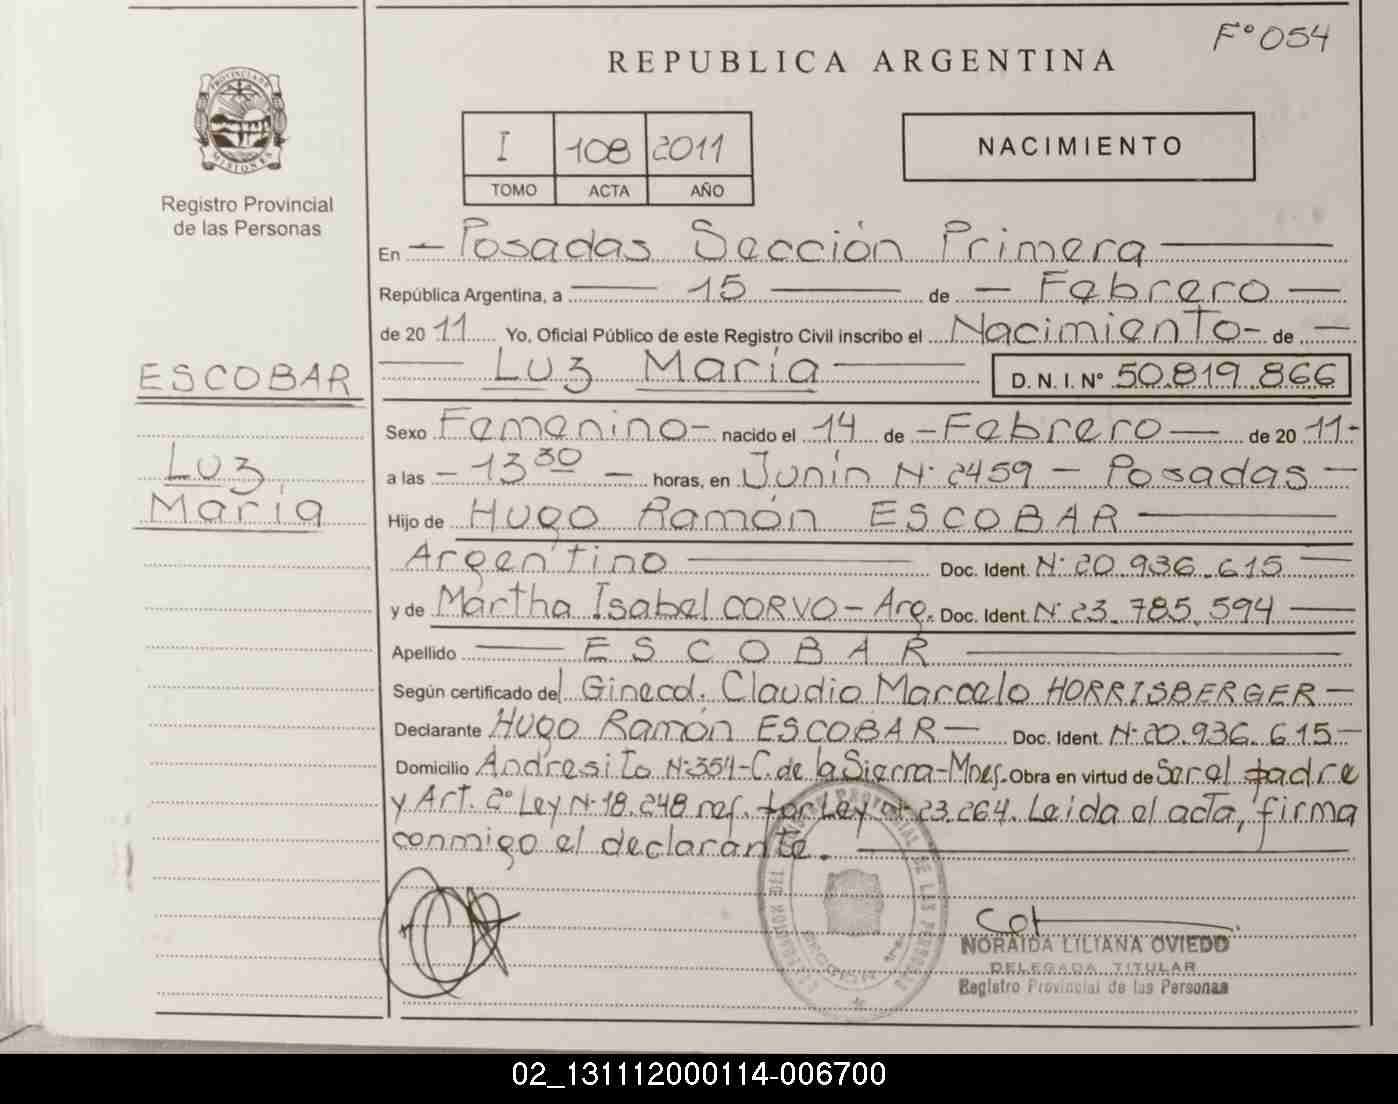 F° 054
REPUBLICA ARGENTINA
PROVINCIA DE
MISIONES
Registro Provincial
de las Personas
I 108 2011
TOMO ACTA AÑO
NACIMIENTO
En Posadas Sección Primera
República Argentina, a 15 de Febrero
de 2011 Yo, Oficial Público de este Registro Civil inscribo el Nacimiento de
Luz María D. N. I. N° 50.819.866
ESCOBAR
Luz
María
Sexo Femenino nacido el 14 de Febrero de 2011
a las 13 30 horas, en Junín N° 2459 - Posadas
Hijo de Hugo Ramón ESCOBAR
Argentino Doc. Ident. N° 20.936.615
y de Martha Isabel CORVO - Arg. Doc. Ident. N° 23.785.594
Apellido ESCOBAR
Según certificado del Ginecol. Claudio Marcelo HORRISBERGER
Declarante Hugo Ramón ESCOBAR Doc. Ident. N° 20.936.615
Domicilio Andresito N° 354 - C. de la Sierra - Mnes. Obra en virtud de Ser el padre
y Art. 2° Ley N° 18.248 ref. por Ley N° 23.264. Leida el acta, firma
conmigo el declarante.
NORAIDA LILIANA OVIEDO
DELEGADA TITULAR
Registro Provincial de las Personas
02_131112000114-006700